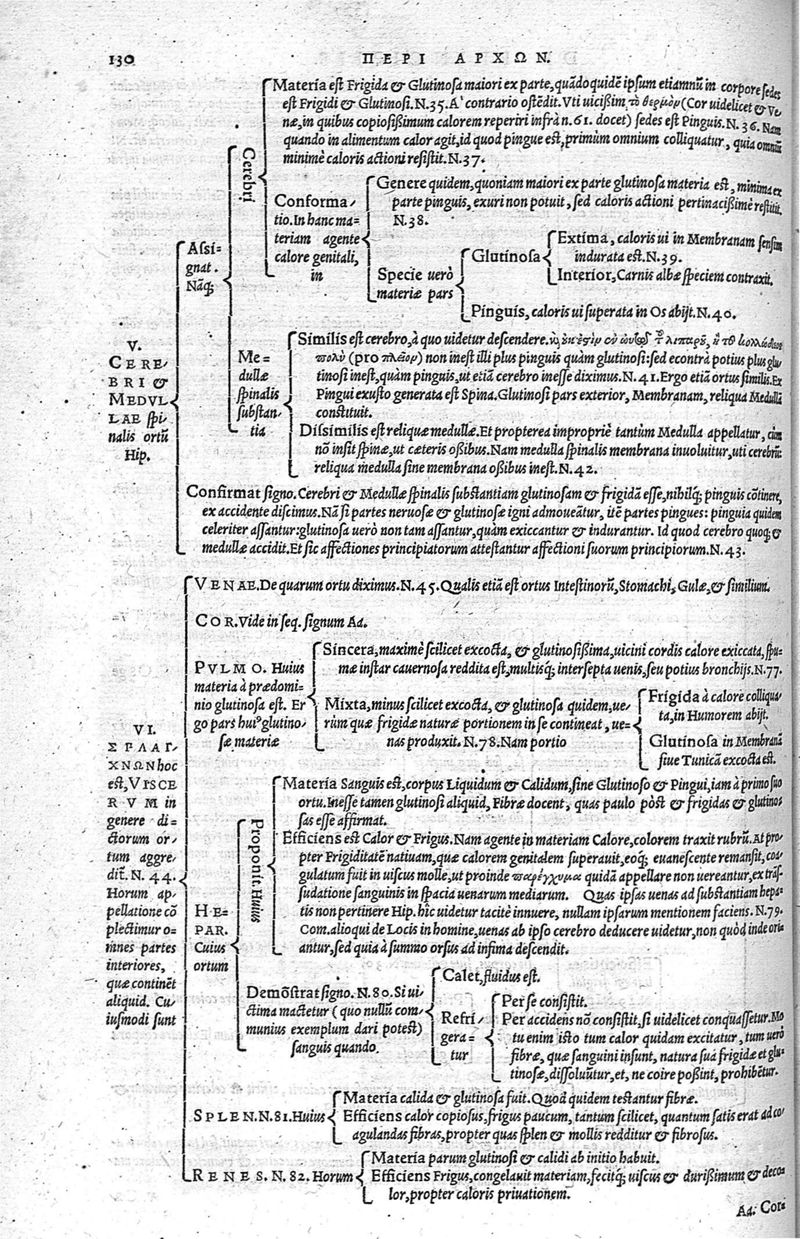 130
ΠΕΡΙ ΑΡΧΩΝ.
V.
CERE-
BRI &
MEDVL
LAE spi-
nalis ortũ
Hip.
Assi-
gnat.
Nãq;
Cerebri
Materia est Frigida & Glutinosa maiori ex parte, quãdoquidẽ ipsum etiamnũ in corpore sedes
est Frigidi & Glutinosi. N. 35. A' contrario ostẽdit. Vti uicißim, τὸ θερμὸν (Cor uidelicet & Ve
næ, in quibus copiosißimum calorem reperiri infrà n. 61. docet) sedes est Pinguis. N. 36. Nam
quando in alimentum calor agit, id quod pingue est, primùm omnium colliquatur, quia omniũ
minimè caloris actioni resistit. N. 37.
Conforma-
tio. In hanc ma=
teriam agente
calore genitali,
in
Genere quidem, quoniam maiori ex parte glutinosa materia est, minima ex
parte pinguis, exuri non potuit, sed caloris actioni pertinacißimè restitit.
N. 38.
Specie uerò
materiæ pars
Glutinosa
Extima, caloris ui in Membranam sensim
indurata est. N. 39.
Interior, Carnis albæ speciem contraxit.
Pinguis, caloris ui superata in Os abijt. N. 40.
Me-
dullæ
spinalis
substan-
tia
Similis est cerebro, à quo uidetur descendere.
πολὺ (pro πλεῖον) non inest illi plus pinguis quàm glutinosi: sed econtrà potius plus glu
tinosi inest, quàm pinguis, ut etiã cerebro inesse diximus. N. 41. Ergo etiã ortus similis. Ex
Pingui exusto generata est Spina. Glutinosi pars exterior, Membranam, reliqua Medullã
constituit.
Dissimilis est reliquæ medullæ. Et propterea impropriè tantùm Medulla appellatur, cùm
nõ insit spinæ, ut cæteris oßibus. Nam medulla spinalis membrana inuoluitur, uti cerebrũ:
reliqua medulla sine membrana oßibus inest. N. 42.
Confirmat signo. Cerebri & Medullæ spinalis substantiam glutinosam & frigidã esse, nihilq; pinguis cõtinere,
ex accidente discimus. Nã si partes neruosæ & glutinosæ igni admoueãtur, itẽ partes pingues: pinguia quidem
celeriter assantur: glutinosa uerò non tam assantur, quàm exiccantur & indurantur. Id quod cerebro quoq; &
medullæ accidit. Et sic affectiones principiatorum attestantur affectioni suorum principiorum. N. 43.
VI.
ΣΠΛΑΓ-
ΧΝΩΝ hoc
est, VISCE
RVM in
genere di-
ctorum or-
tum aggre-
dit̃. N. 44.
Horum ap-
pellatione cõ
plectimur o-
mnes partes
interiores,
quæ continẽt
aliquid. Cu-
iusmodi sunt
VENAE. De quarum ortu diximus. N. 45. Qualis etiã est ortus Intestinorũ, Stomachi, Gulæ, & similium.
COR. Vide in seq. signum Aa.
PVLMO. Huius
materia à prædomi-
nio glutinosa est. Er
go pars huiꝰ glutino-
sæ materiæ
Sincera, maximè scilicet excocta, & glutinosißima, uicini cordis calore exiccata, spu-
mæ instar cauernosa reddita est, multisq; intersepta uenis, seu potius bronchijs. N. 77.
Mixta, minus scilicet excocta, & glutinosa quidem, ue-
rùm quæ frigidæ naturæ portionem in se contineat, ue=
nas produxit. N. 78. Nam portio
Frigida à calore colliqua
ta, in Humorem abijt.
Glutinosa in Membranã
siue Tunicã excocta est.
HE-
PAR.
Cuius
ortum
Proponit. Huius
Materia Sanguis est, corpus Liquidum & Calidum, sine Glutinoso & Pingui, iam à primo suo
ortu. Inesse tamen glutinosi aliquid, Fibræ docent, quas paulo pòst & frigidas & glutinos
sas esse affirmat.
Efficiens est Calor & Frigus. Nam agente in materiam Calore, colorem traxit rubrũ. At pro-
pter Frigiditatẽ natiuam, quæ calorem genitalem superauit, eoq; euanescente remansit, coa-
gulatum fuit in uiscus molle, ut proinde παρέγχυμα quidã appellare non uereantur, ex trãs-
sudatione sanguinis in spacia uenarum mediarum. Quas ipsas uenas ad substantiam hepa-
tis non pertinere Hip. hîc uidetur tacitè innuere, nullam ipsarum mentionem faciens. N. 79.
Com. alioqui de Locis in homine, uenas ab ipso cerebro deducere uidetur, non quòd inde oria
antur, sed quia à summo orsus ad infima descendit.
Demõstrat signo. N. 80. Si ui-
ctima mactetur (quo nullũ com-
munius exemplum dari potest)
sanguis quando
Calet, fluidus est.
Refri-
gera-
tur
Per se consistit.
Per accidens nõ consistit, si uidelicet conquassetur. Mo
tu enim isto tum calor quidam excitatur, tum uerò
fibræ, quæ sanguini insunt, natura sua frigidæ et glu-
tinosæ, dissoluũtur, et, ne coire poßint, prohibẽtur.
SPLEN. N. 81. Huius
Materia calida & glutinosa fuit. Quod quidem testantur fibræ.
Efficiens calor copiosus, frigus paucum, tantum scilicet, quantum satis erat ad co-
agulandas fibras, propter quas splen & mollis redditur & fibrosus.
RENES. N. 82. Horum
Materia parum glutinosi & calidi ab initio habuit.
Efficiens Frigus, congelauit materiam, fecitq; uiscus & durißimum & decō
lor, propter caloris priuationem.
Aa. Cori